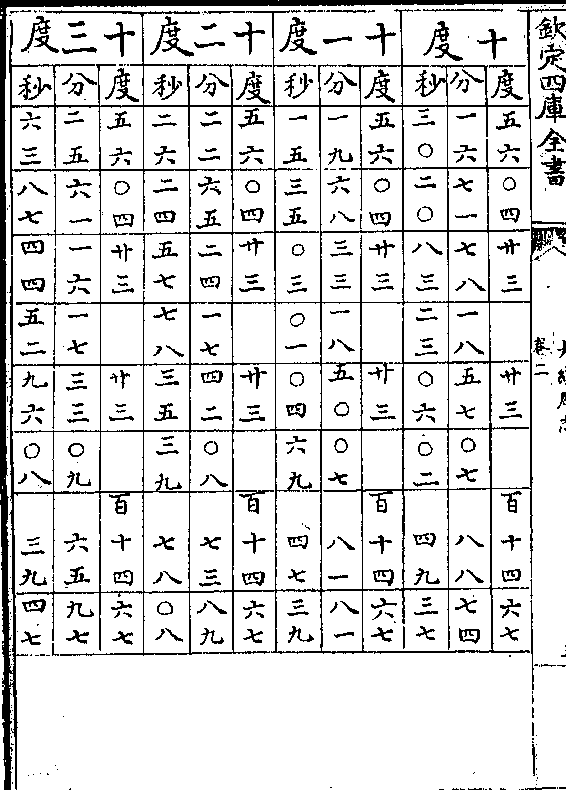 欽定四庫全書
卷二
十度
度 五六 〇四 廿三 廿三 百十四 六七
分 一六 七一 七八 一八 五七 〇七 八八 七四
秒 三〇 二〇 八三 二三 〇六 〇二 四九 三七
十一度
度 五六 〇四 廿三 廿三 百十四 六七
分 一九 六八 三三 一八 五〇 〇七 八一 八一
秒 一五 三五 〇三 〇一 〇四 六九 四七 三九
十二度
度 五六 〇四 廿三 廿三 百十四 六七
分 二二 六五 二四 一七 四二 〇八 七三 八九
秒 二六 二四 五七 七八 三五 三九 七八 〇八
十三度
度 五六 〇四 廿三 廿三 百十四 六七
分 二五 六一 一六 一七 三三 〇九 六五 九七
秒 六三 八七 四四 五二 九六 〇八 三九 四七